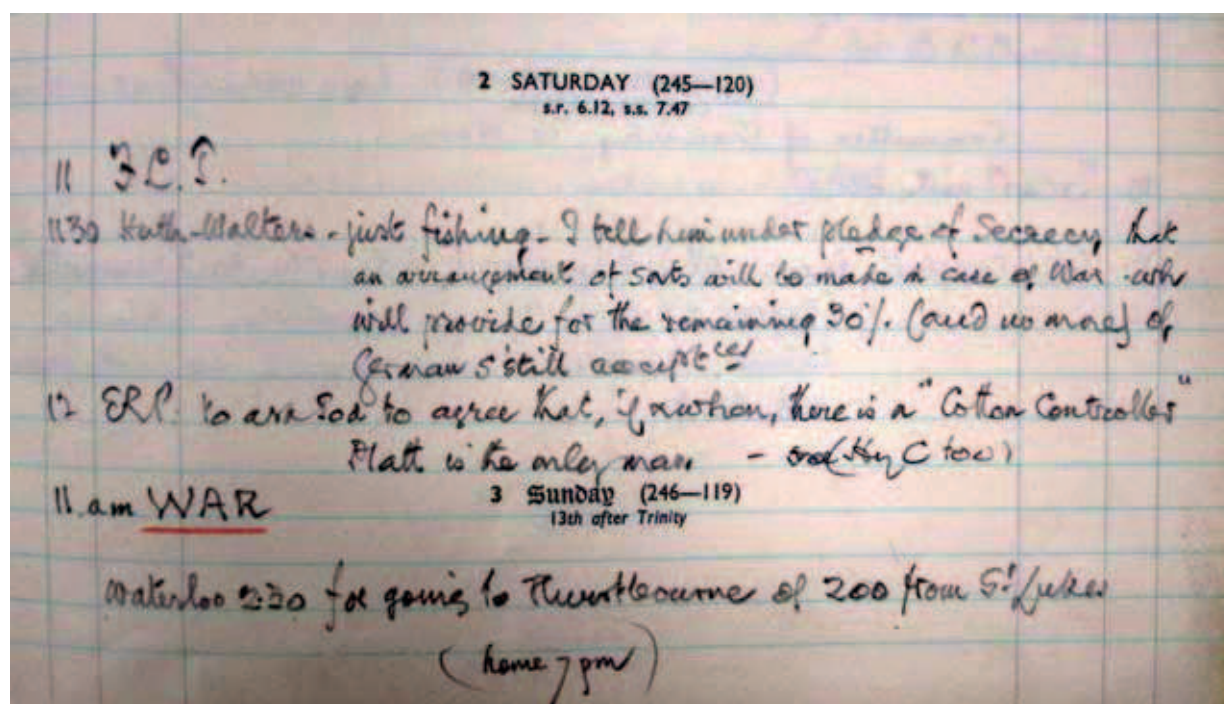 2 SATURDAY (245—120)
s.r. 6.12, s.s. 7.47
11 F.C.T.
1130 Huth-Walters - just fishing - I tell him under pledge of Secrecy that
an arrangement of sorts will be made in case of War - wh
will provide for the remaining 30%. (and no more) of
German S'still accept ces
12 ERP. to ask to agree that, if & when, there is a "Cotton Controller"
Platt is the only man - (Hy C too)
11 am WAR
3 Sunday (246—119)
13th after Trinity
Waterloo 2:30 for going to Hurstbourne of 200 from St Lukes
(home 7 pm)